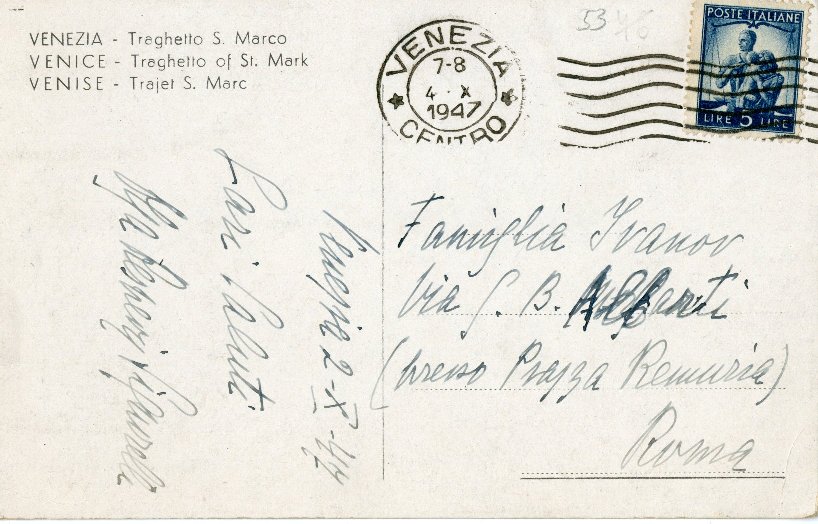 VENEZIA - Traghetto S. Marco
VENICE - Traghetto of St. Mark
VENISE - Trajet S. Marc
VENEZIA
7-8
4 · X
1947
CENTRO
53
POSTE ITALIANE
LIRE 5 LIRE
Venezia 2-X-47
Cari Saluti
Famiglia Ivanov
Via G. B.
(presso Piazza Remuria)
Roma